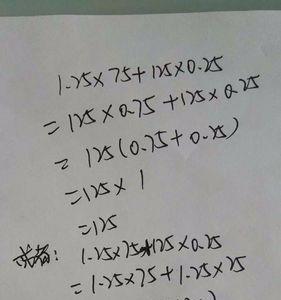 1.25×75+125×0.25
=125×0.75+125×0.25
=125(0.75+0.25)
=125×1
=125
或者: 1.25×75+125×0.25
=1.25×75+1.25×25